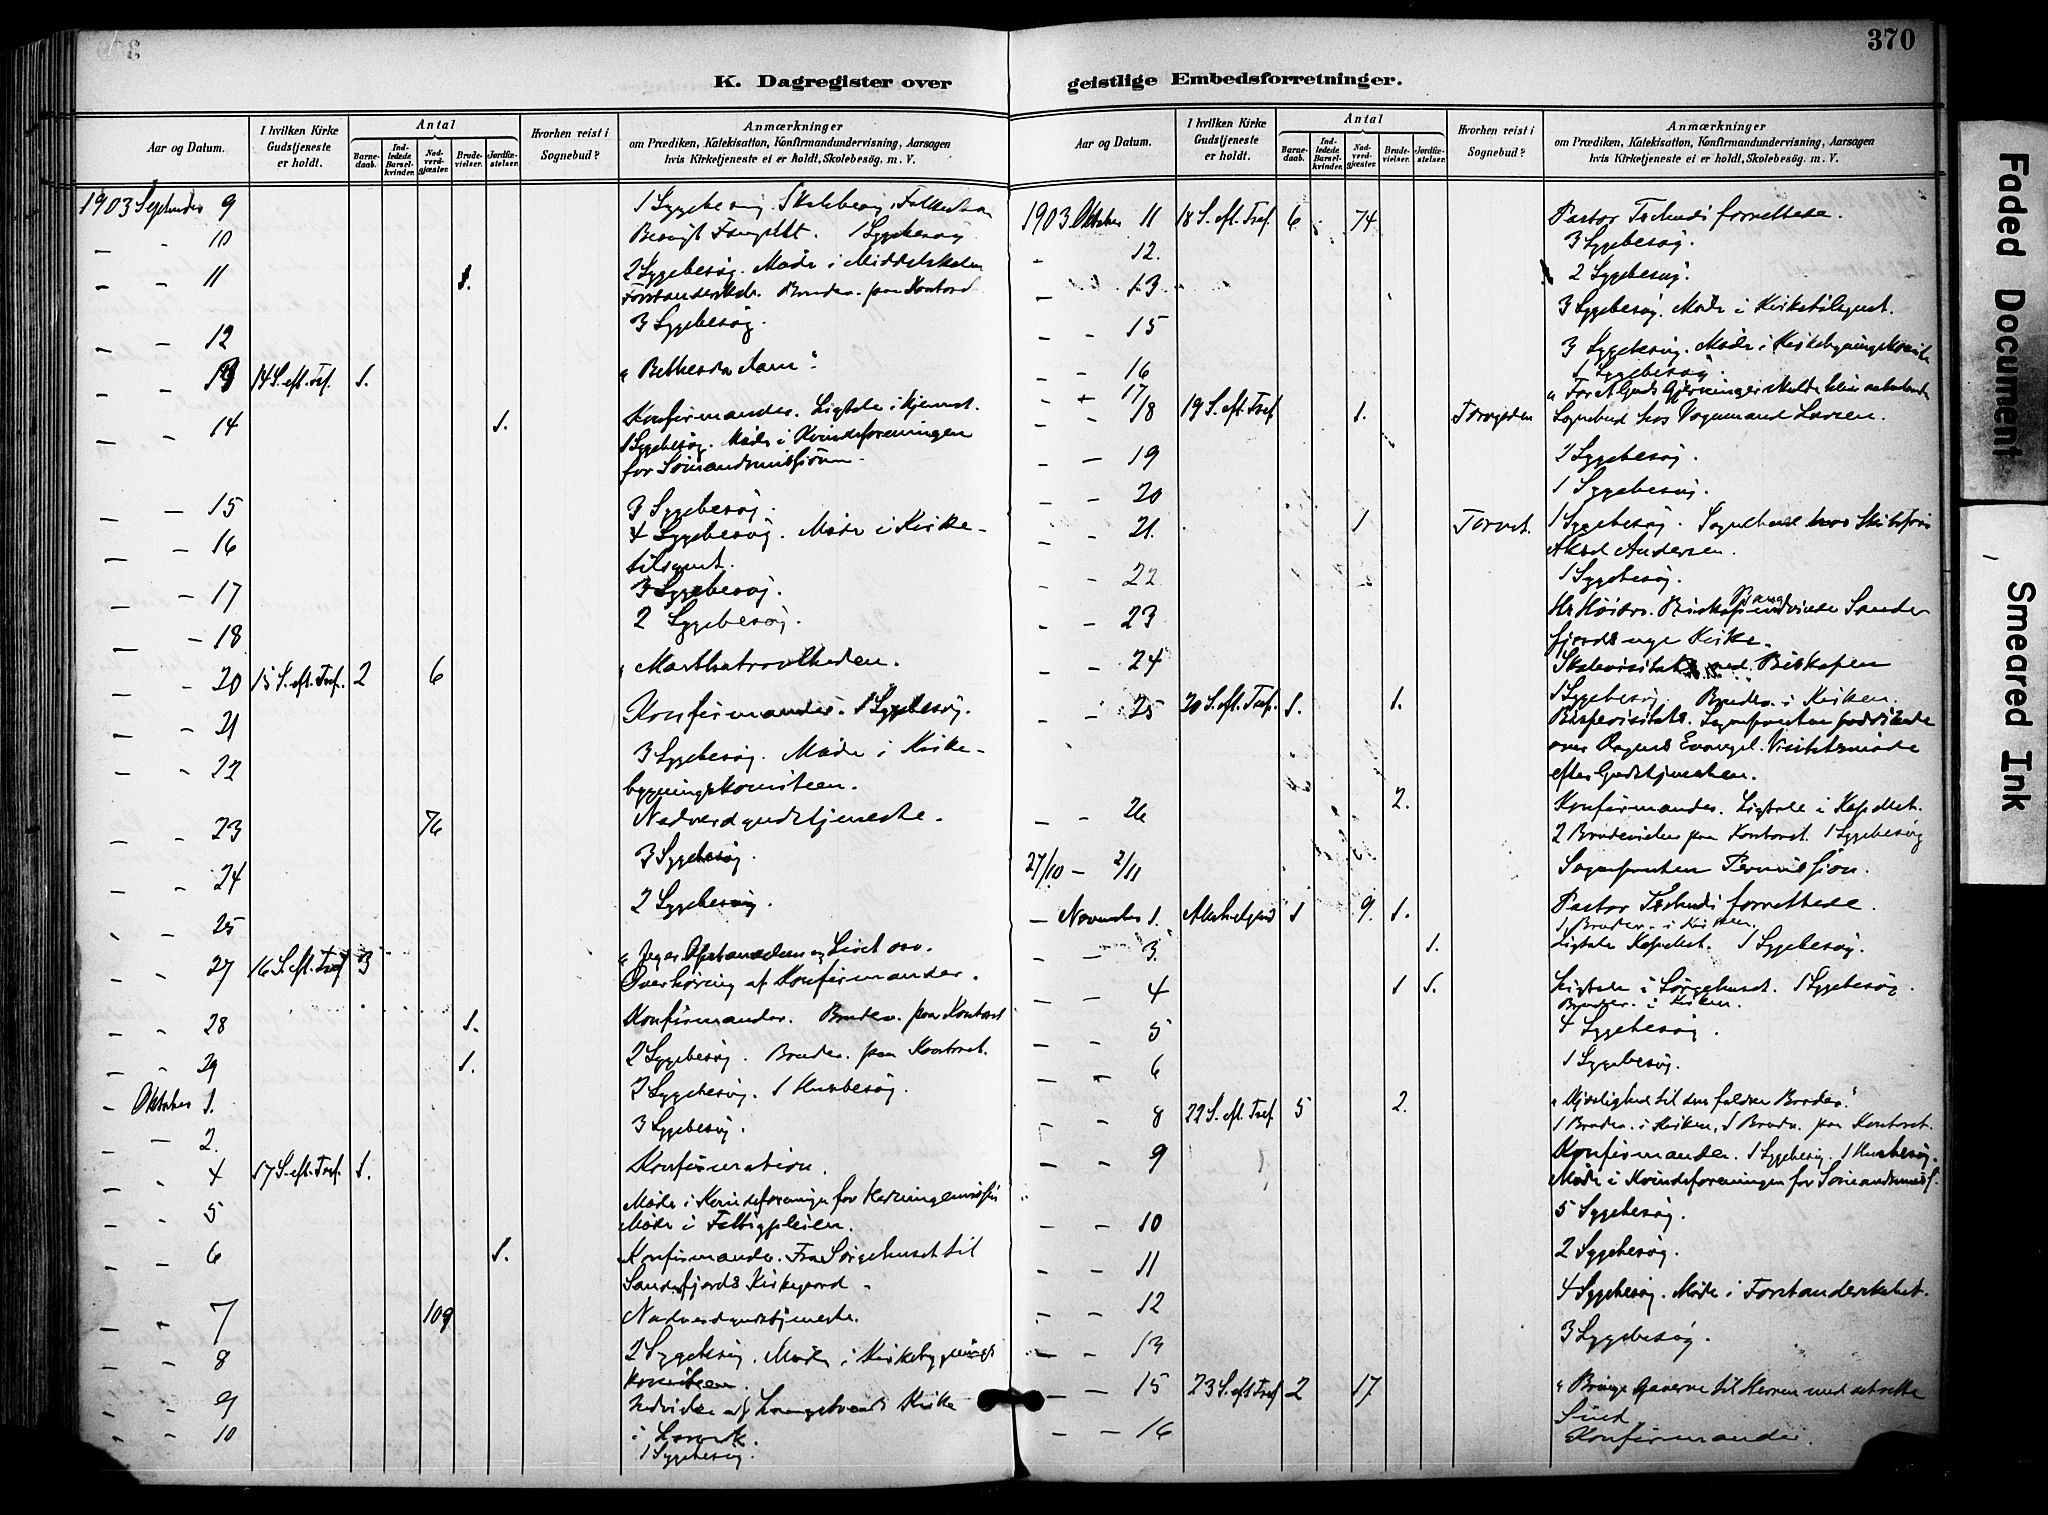 370
K. Dagregister over geistlige Embedsforretninger.
Aar og Datum.
I hvilken Kirke Gudstjeneste er holdt.
Antal
Barnedaab.
Indledede Barselkvinder.
Nadverdgjæster.
Brudevielser.
Jordfæstelser.
Hvorhen reist i Sognebud?
Anmærkninger
om Prædiken, Katekisation, Konfirmandundervisning, Aarsagen
hvis Kirketjeneste ei er holdt, Skolebesøg. m. V.
1903 September 9 1 Sygebesøg. Skolebesøg
- - 10 Besøgt 1 Sygebesøg
- - 11 1. 2 Sygebesøg. Møde i Middelskolens
Forstandersk. Brudev. paa Kontoret
- - 12 3 Sygebesøg.
- - 13 14 S. eft. Tref. 1. "Bethesda dam".
- - 14 1. Konfirmander. Ligtale i Hjemmet.
1 Sygebesøg. Møde i Kvindeforeningen
for Sømandsmissionen.
- - 15 3 Sygebesøg.
- - 16 4 Sygebesøg. Møde i Kirke-
tilsynet.
- - 17 3 Sygebesøg.
- 18 2 Sygebesøg.
- - 20 15 S. eft. Tref. 2 6 "Marthatravlheden.
- - 21 Konfirmander. 1 Sygebesøg.
- - 22 3 Sygebesøg. Møde i Kirke-
bygningskomiteen.
- - 23 76 Nadverdgudstjeneste.
- - 24 3 Sygebesøg.
- - 25 2 Sygebesøg.
- - 27 16 S. eft. Tref 3 "Jeg er Opstandelsen og Livet osv.
Overhøring af Konfirmander.
- - 28 1. Konfirmander. Brudev. paa Kontoret
- - 29 1. 2 Sygebesøg. Brudev. paa Kontoret.
- Oktober 1. 2 Sygebesøg. 1 Husbesøg.
- - 2. 3 Sygebesøg.
- - 4 17 S. eft. Tref. 1. Konfirmation.
- - 5 Møde i Kvindeforeningen for
Møde i Fattigpleien.
- - 6 1. Konfirmander. Fra Sørgehuset til
Sandefjords Kirkegaard.
- - 7 109 Nadverdgudstjeneste.
- - 8 2 Sygebesøg. Møde i Kirkebygnings
komiteen.
- - 9 Indvielse af Langestrands Kirke
- - 10 i Larvik.
1 Sygebesøg.
Aar og Datum.
I hvilken Kirke Gudstjeneste er holdt.
Antal
Barnedaab.
Indledede Barselkvinder.
Nadverdgjæster.
Brudevielser.
Jordfæstelser.
Hvorhen reist i Sognebud?
Anmærkninger
om Prædiken, Katekisation, Konfirmandundervisning, Aarsagen
hvis Kirketjeneste ei er holdt, Skolebesøg. m. V.
1903 Oktober 11 18 S. eft. Tref. 6 74 Pastor Tschudi forrettede.
- 12. 3 Sygebesøg.
- - 13 2 Sygebesøg.
- - 15 3 Sygebesøg. Møde i Kirketilsynet.
- - 16 3 Sygebesøg. Møde i Kirkebygningskomite
- - 17 1 Sygebesøg.
- - 18 19 S. eft. Tref 1. Torvgaden "For at Guds Gjerninger skulde blive
Sognebud hos Vognmand Larsen.
- - 19 2 Sygebesøg.
- - 20 1 Sygebesøg.
- - 21. 1 Torvet. 1 Sygebesøg. Sognebud hos
Andersen.
- - 22 1 Sygebesøg.
- - 23 Hr Biskop Bang indviede Sande-
fjords nye Kirke.
- - 24 Skolevisitats ved Biskopen
- - 25 20 S. eft. Tref. 1. 1. 1 Sygebesøg. Brudev. i Kirken.
Bispevisitats. Sognepresten prædikede
over Dagens Evangel. Visitatsmøde
efter Gudstjenesten.
- - 26 2. Konfirmander. Ligtale i Kapellet.
2 Brudevielser paa Kontoret. 1 Sygebesøg
27/10 - 2/11 Sognepresten Permission.
- November 1. Allehelgens 1 9 1. Pastor Tschudi forrettede.
1 Brudev. i Kirken.
- 3. 1. Ligtale Kapellet. 1 Sygebesøg.
- - 4 1 1. Ligtale i Sørgehuset. 1 Sygebesøg.
Brudev. i Kirken.
- - 5 4 Sygebesøg.
- - 6 1 Sygebesøg.
- - 8 22 S. eft. Tref 5 2. "Kjærlighed til den faldne Broder".
1 Brudev. i Kirken, 1 Brudv. paa Kontoret.
- - 9 Konfirmander. 1 Sygebesøg. 1 Husbesøg.
Møde i Kvindeforeningen for Sømandsmiss.
- - 10 5 Sygebesøg.
- - 11 2 Sygebesøg.
- - 12 4 Sygebesøg. Møde i Forstanderskabet.
- - 13 3 Sygebesøg.
- - 15 23 S. eft Tref 2 17 "Bringe Gaverne til Herren med det rette
Sind
- - 16 Konfirmander.
Faded Document
Smeared Ink